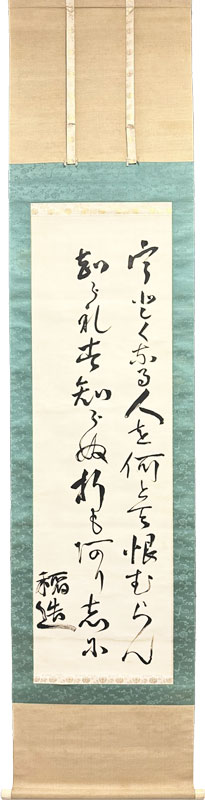 うとくなる人を何とて恨むらん
知られず知らぬ折もありしに
稲造